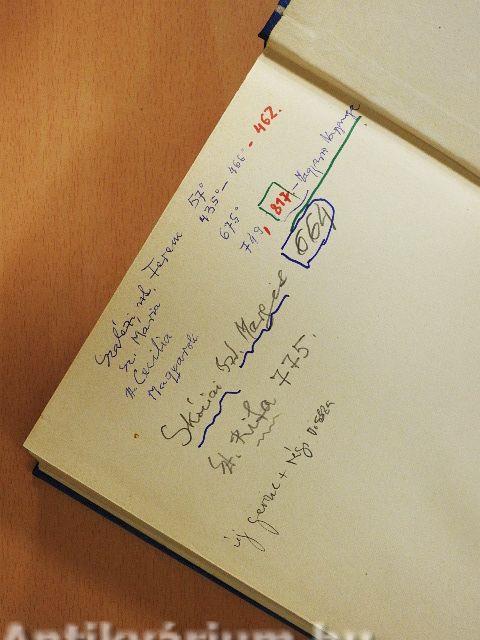 Szaléz. sz. Ferenc 57°
Sz. Mária 435° - 466° - 462.
sz. Cecilia 675°
Magyarok 749, 817 - Magyarok Nagyasszonya
Skóciai Szt. Margit 664
Szt. Rita 775.
új gerinc + régi vissza
Antikvárium.hu